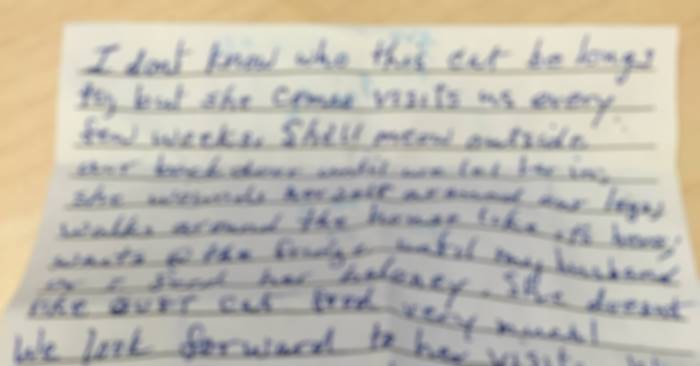 I dont know who this cat belongs
to, but she comes visits us every
few weeks. She'll meow outside
our back door until we let her in,
she wounds herself around our legs,
walks around the house like its hers,
waits @ the fridge until my husband
or I feed her baloney. She doesnt
like our cat food very much!
We look forward to her visits.